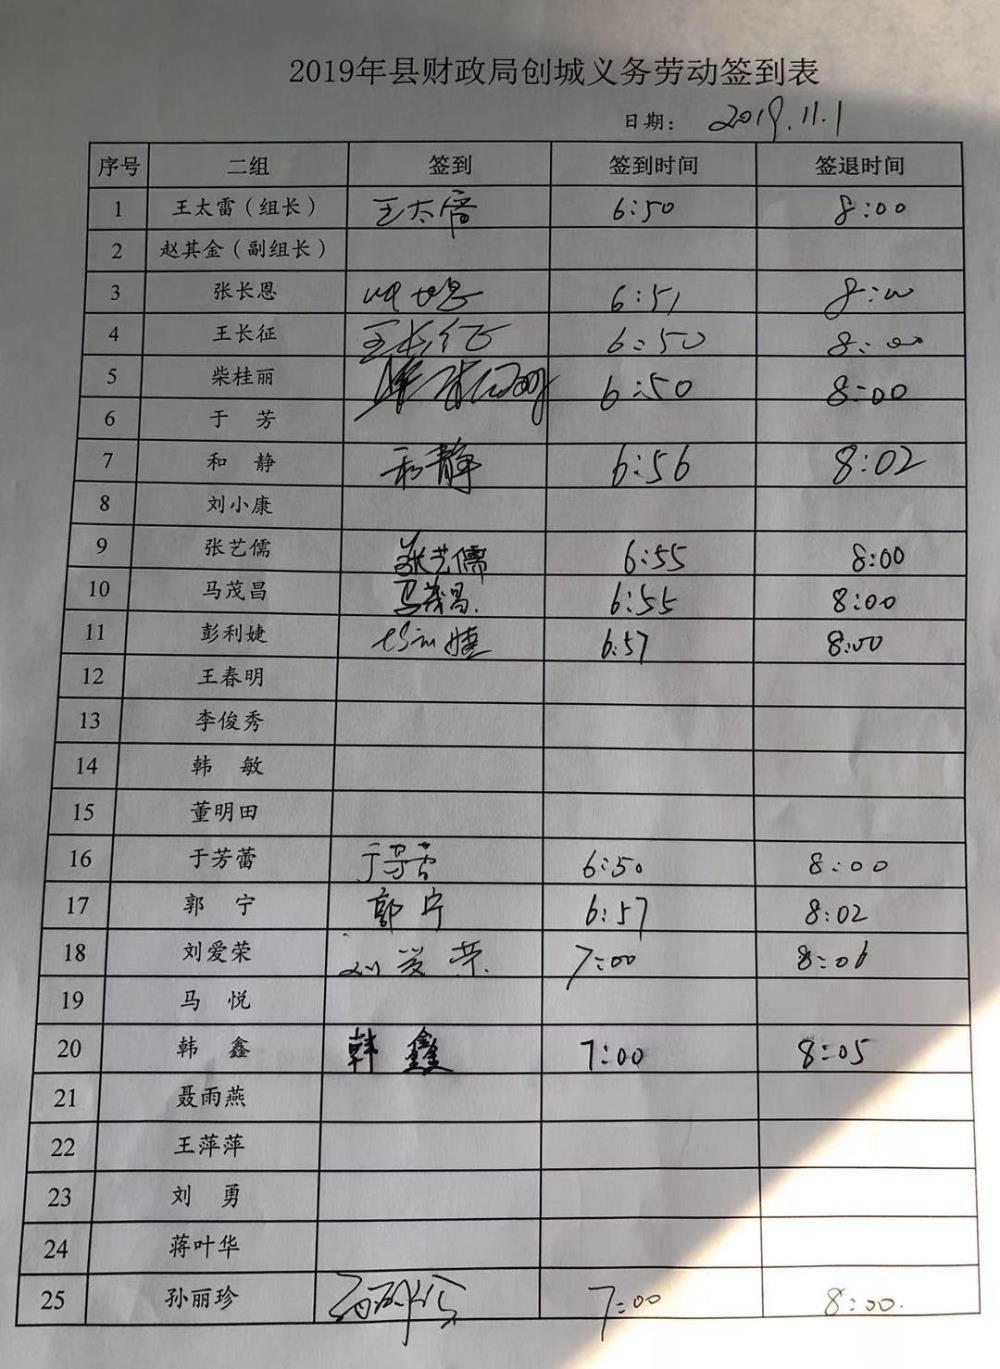 2019年县财政局创城义务劳动签到表
日期： 2019.11.1
序号 二组 签到 签到时间 签退时间
1 王太雷（组长） 王太雷 6:50 8:00
2 赵其金（副组长）
3 张长恩 张长恩 6:51 8:00
4 王长征 王长征 6:50 8:00
5 柴桂丽 柴桂丽 6:50 8:00
6 于 芳
7 和 静 和静 6:56 8:02
8 刘小康
9 张艺儒 张艺儒 6:55 8:00
10 马茂昌 马茂昌 6:55 8:00
11 彭利婕 彭利婕 6:57 8:00
12 王春明
13 李俊秀
14 韩 敏
15 董明田
16 于芳蕾 于芳蕾 6:50 8:00
17 郭 宁 郭宁 6:57 8:02
18 刘爱荣 刘爱荣 7:00 8:06
19 马 悦
20 韩 鑫 韩鑫 7:00 8:05
21 聂雨燕
22 王萍萍
23 刘 勇
24 蒋叶华
25 孙丽珍 孙丽珍 7:00 8:00